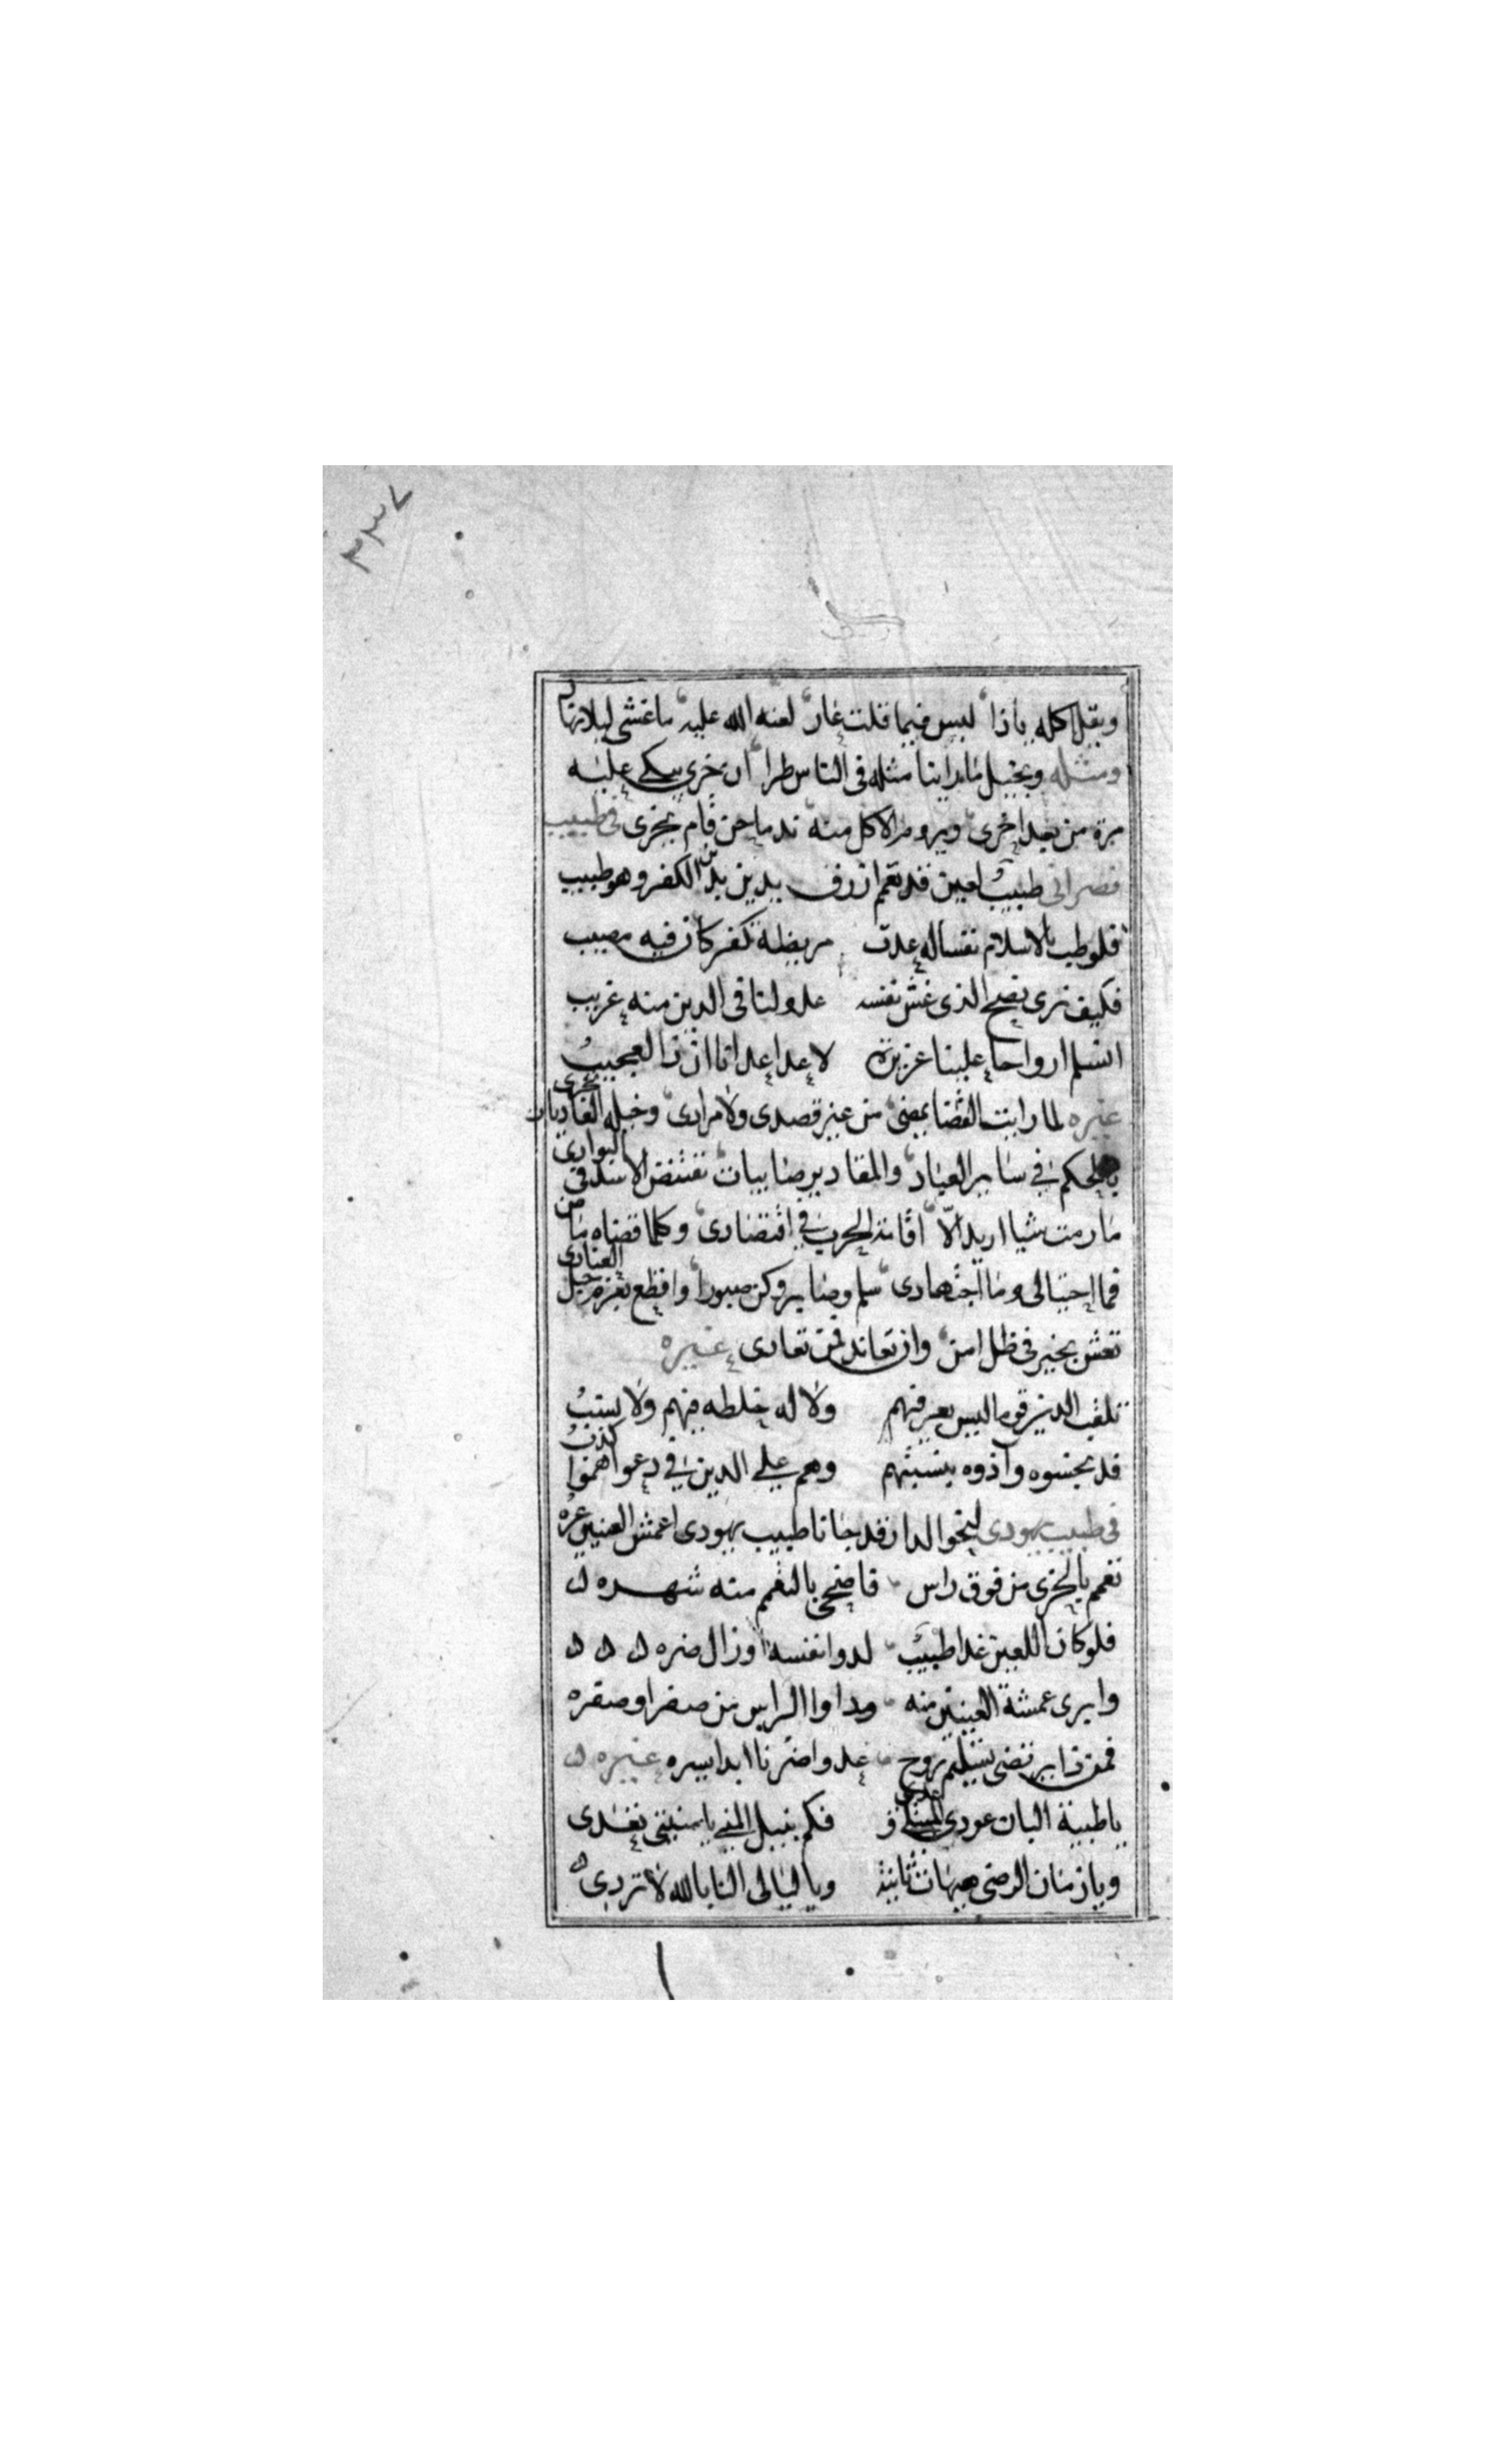 ٣٣٧
ويقل اكله ياذا ليس فيما قلت عار لعنة الله عليه ماغشى ليلا نهار
ومثله وبخيل ما راينا مثله فى الناس طرا ان خرى يبكى عليه
مرة من بعد اخرى ويروم الاكل منه ند ما حن قام يخرى فى طبيب
نصرانى طبيب لعين قد تعمم ازرق يدين بدين الكفر وهو طبيب
فلو طب بالاسلام نفسا له غدت مريضة كفر كان فيه مصيب
فكيف نرى نصح الذى غش نفسه عدو لنا فى الدين منه غريب
انسلم ارواحا علينا عزيزة لاعدا عدانا ان ذا لعجيب
غيره لما رايت القضا يمضى من غير قصدى ولا مرادى وخيله الغاديات تجرى
بالحكم فى ساير العباد والمقادير صاييات تقتنض الاسد فى البوادى
ما رمت شيا اريد الا اقامة الحرب فى اقتصادى وكلما قضاه ماض
فما احتيالى وما اجتهادى سلم وصابر وكن صبورا واقطع بعزم حبل العنادى
تعش بخير فى ظل امن وان تعاند فمن تعادى غيره
تلقب الدين قوما ليس يعرفهم ولا له خلطه فيهم ولا نسب
قد نجسوه واذوه بنسبتهم وهم على الدين فى دعواهموا كذب
فى طبيب يهودى لنحو الدار قد جانا طبيب يهودى اعمش العنين عره
تعمم بالخزى من فوق راس فاضحى بالتعمم منه شهره ه
فلو كان اللعين غدا طبيب لدوا نفسه وزال ضره ه ه ه
وابرى عمشة العينين منه وداوا الراس من صفرا وصفره
فمن ذا يرتضى تسليم روح عدو اضرنا ابدا يسره غيره ه
ياطبية البان عودى فكم بنيل المنى يامنيتى تعدى
ويازمان الرضى هيهات ثانية وياليالى النا بالله لا تردى ه